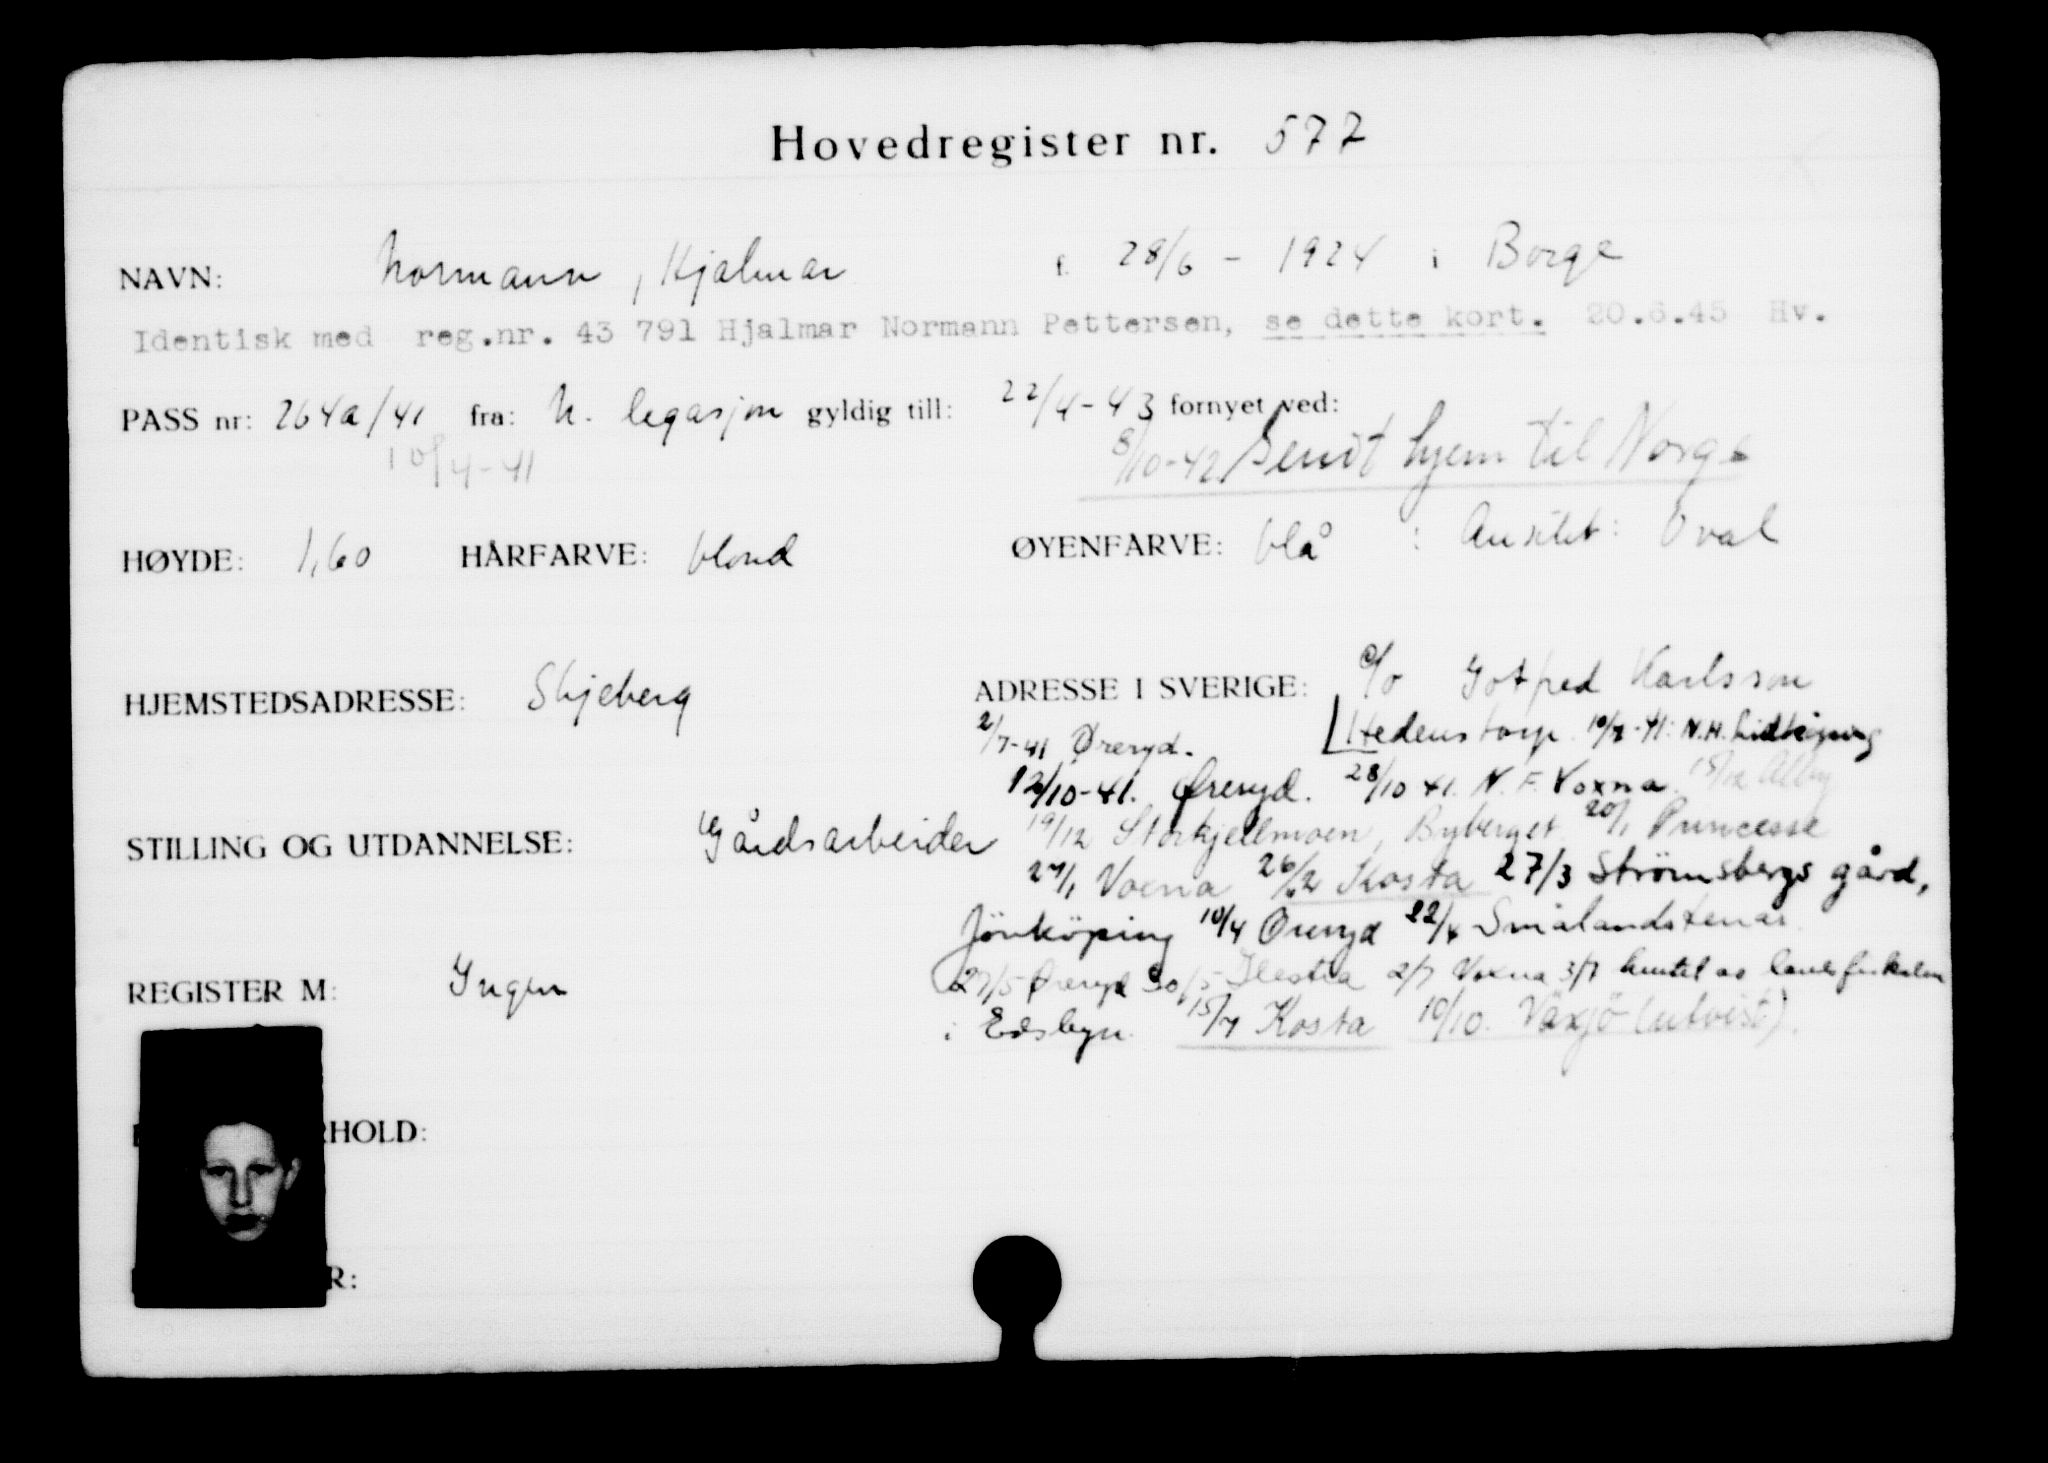 Hovedregister nr. 577
NAVN: Normann, Hjalmar f. 28/6 - 1924 i Borge
Identisk med reg.nr. 43 791 Hjalmar Normann Pettersen, se dette kort. 20.6.45 Hv.
PASS nr: 264a/41 fra: N. legasjon gyldig till: 22/4-43 fornyet ved:
10/4-41 8/10-42 Sendt hjem til Norge
HØYDE: 1,60 HÅRFARVE: blond ØYENFARVE: blå : Ansikt: Oval
HJEMSTEDSADRESSE: Skjeberg ADRESSE I SVERIGE: c/o Gotfred Karlsson
2/7-41 Øreryd. Hedenstorp. N.H.
12/10-41. Øreryd. 28/10 41. N.F. Voxna. 15/12 Alby
STILLING OG UTDANNELSE: Gårdsarbeider 19/12 Storkjellmoen, Byberget 20/1 Princesse
27/1 Voxna 26/2 Kosta 27/3 Strömsbergs gård,
Jönköping 10/4 Öreryd 22/4 Smålandstenar
REGISTER M: Ingen 27/5 Øreryd 30/5 2/7 Voxna 3/7 hentet av landsfiskalen
i Edsbyn. 15/7 Kosta 10/10. Växjö (utvist).
RHOLD:
R: